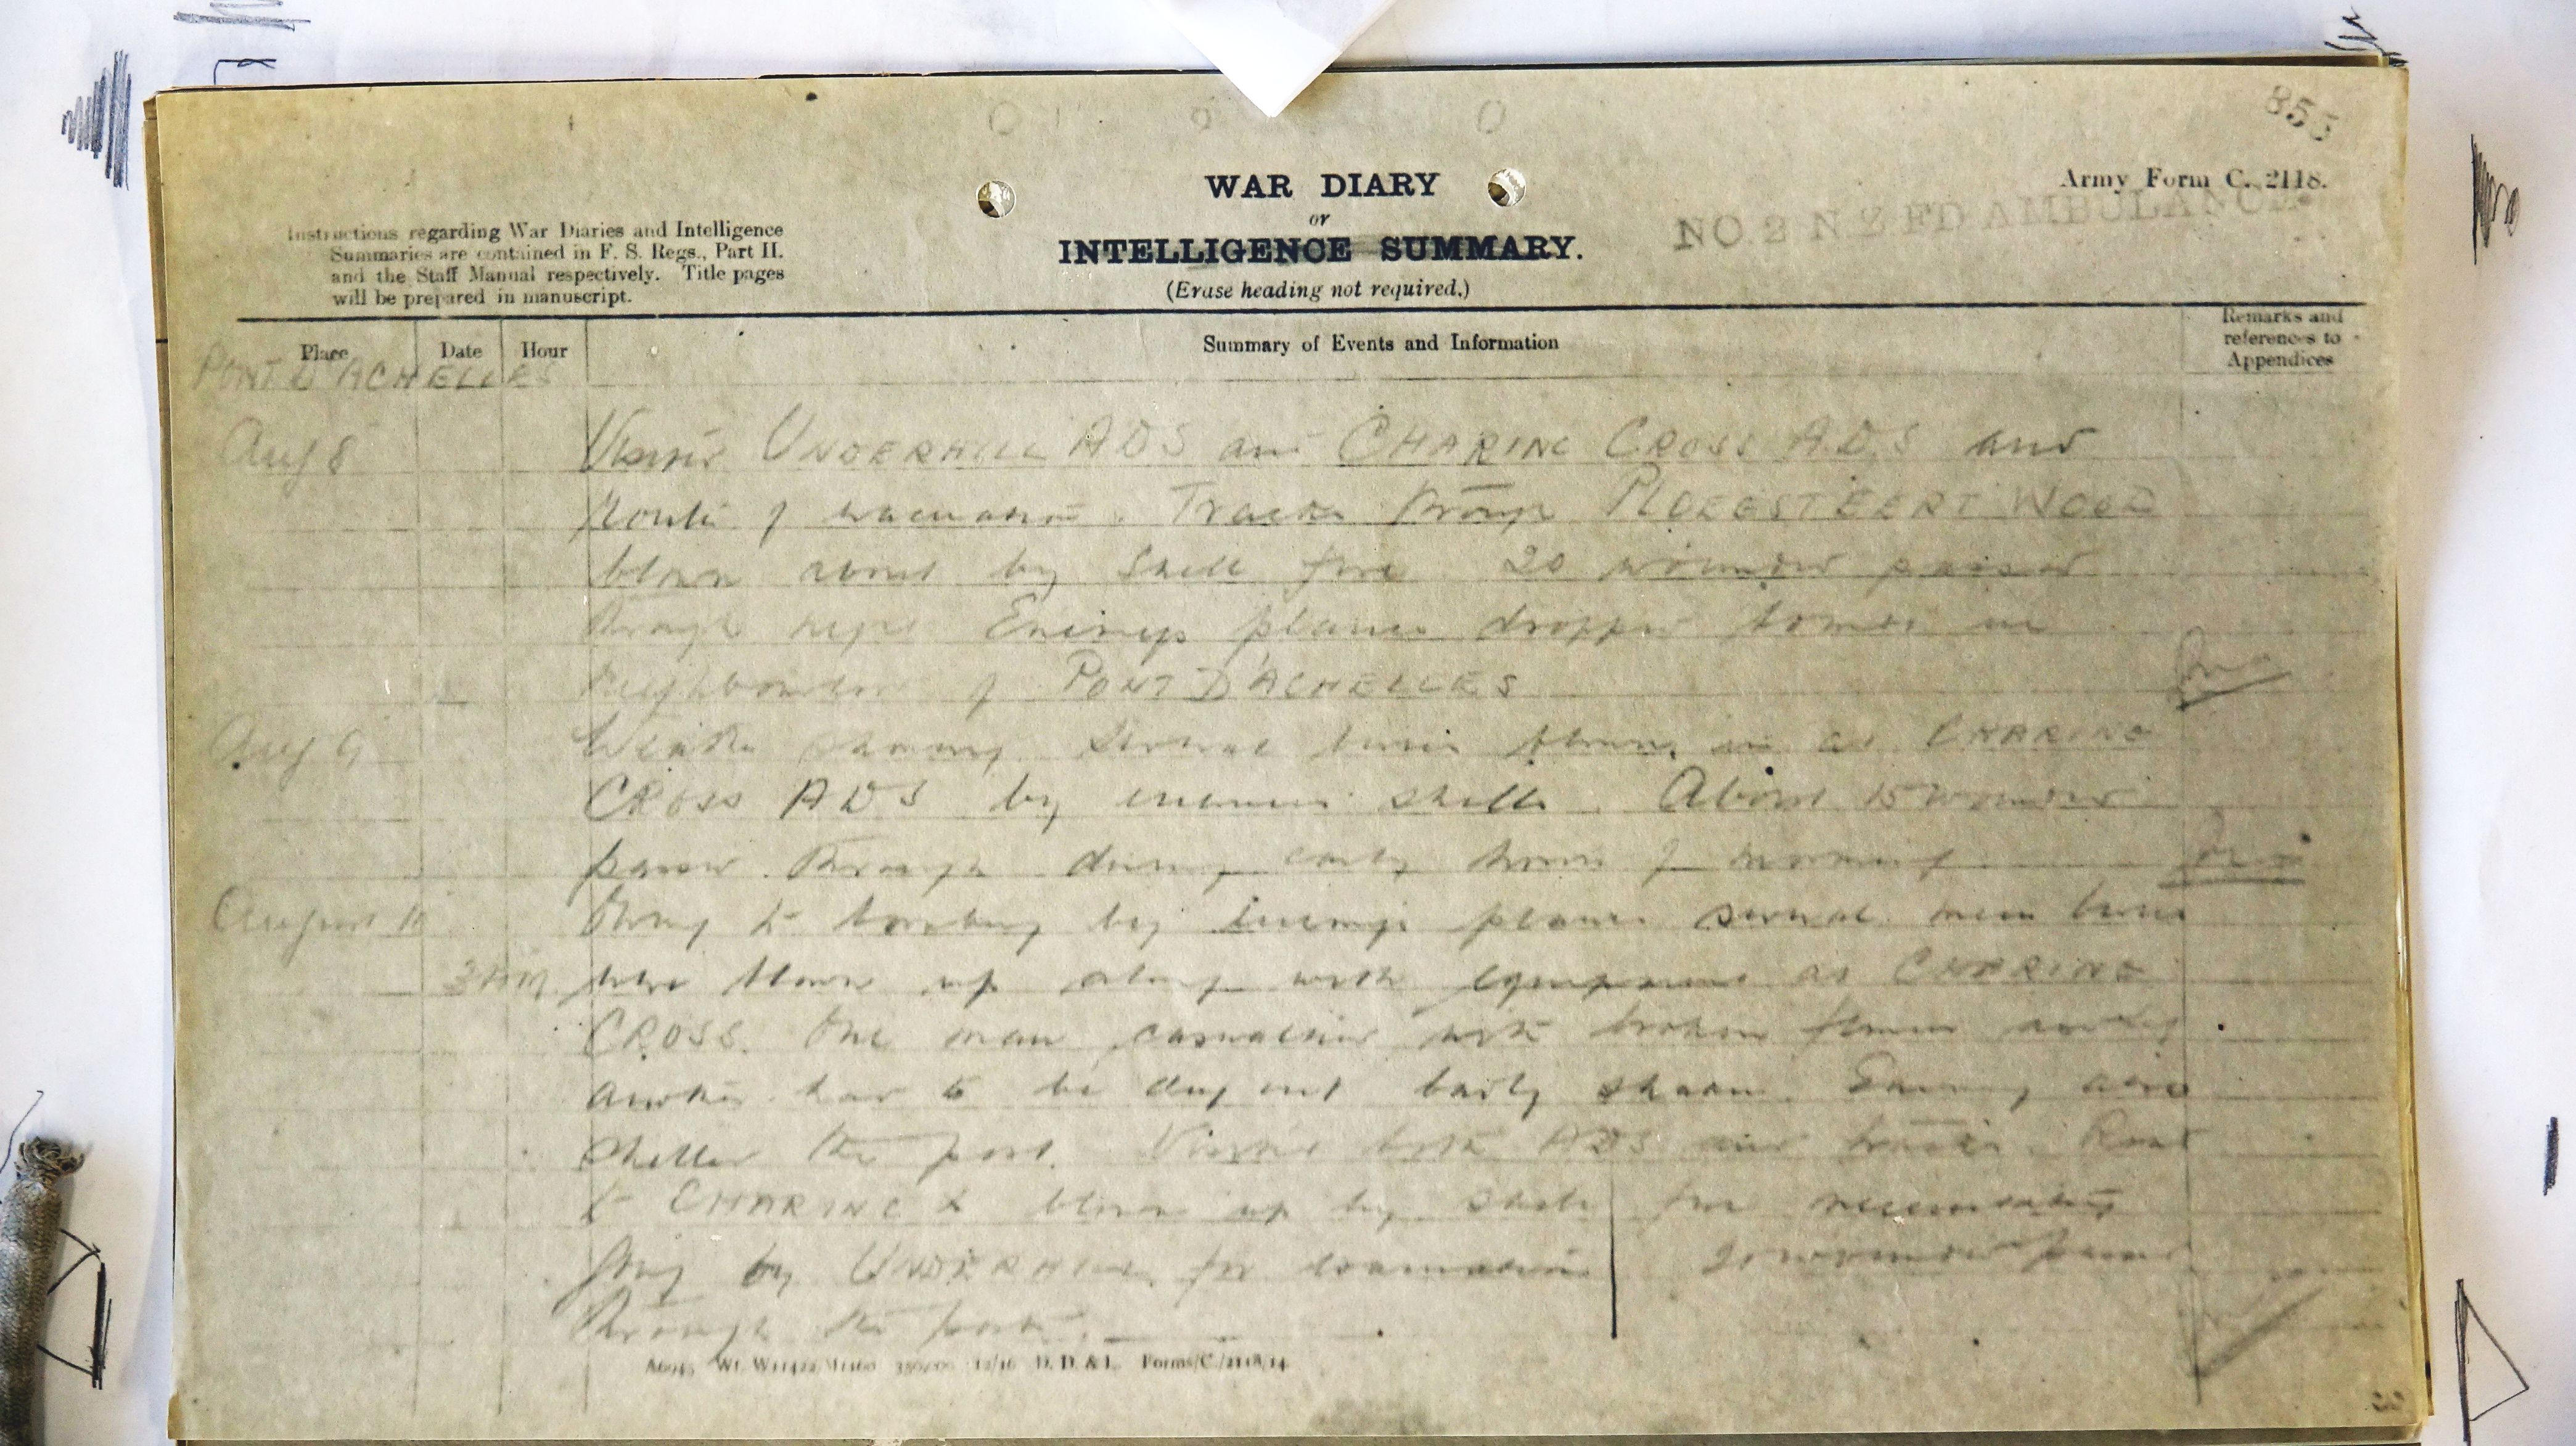 855
Army Form C. 2118.
WAR DIARY
or
INTELLIGENCE SUMMARY.
(Erase heading not required.)
NO 2 N Z FD AMBULANCE
Instructions regarding War Diaries and Intelligence
Summaries are contained in F. S. Regs., Part II.
and the Staff Manual respectively. Title pages
will be prepared in manuscript.
Place Date Hour Summary of Events and Information Remarks and references to Appendices
PONT D'ACHELLES
Aug 8 UNDERHILL ADS and CHARING CROSS A.D.S and
Route of evacuation. Tracks through PLOEGSTEERT WOOD
blown about by Shell fire 20 wounded passed
through night Enemy planes dropped bombs in
neighbourhood of PONT D'ACHELLES
Aug 9 Weather Several blown in at CHARING
CROSS ADS by enemies shells. About 15 wounded
passed through during early hours of morning
August 10 Owing to bombing by Enemys planes several men
3 AM were blown up along with equipment at CHARING
CROSS. One man with broken femur
another had to be dug out badly shaken. Enemy also
shelled the post. Visited both ADS and tracks. Road
to CHARING X blown up by shell fire
going by UNDERHILL for evacuation 20 wounded passed
through the post.
Forms/C./2118/14